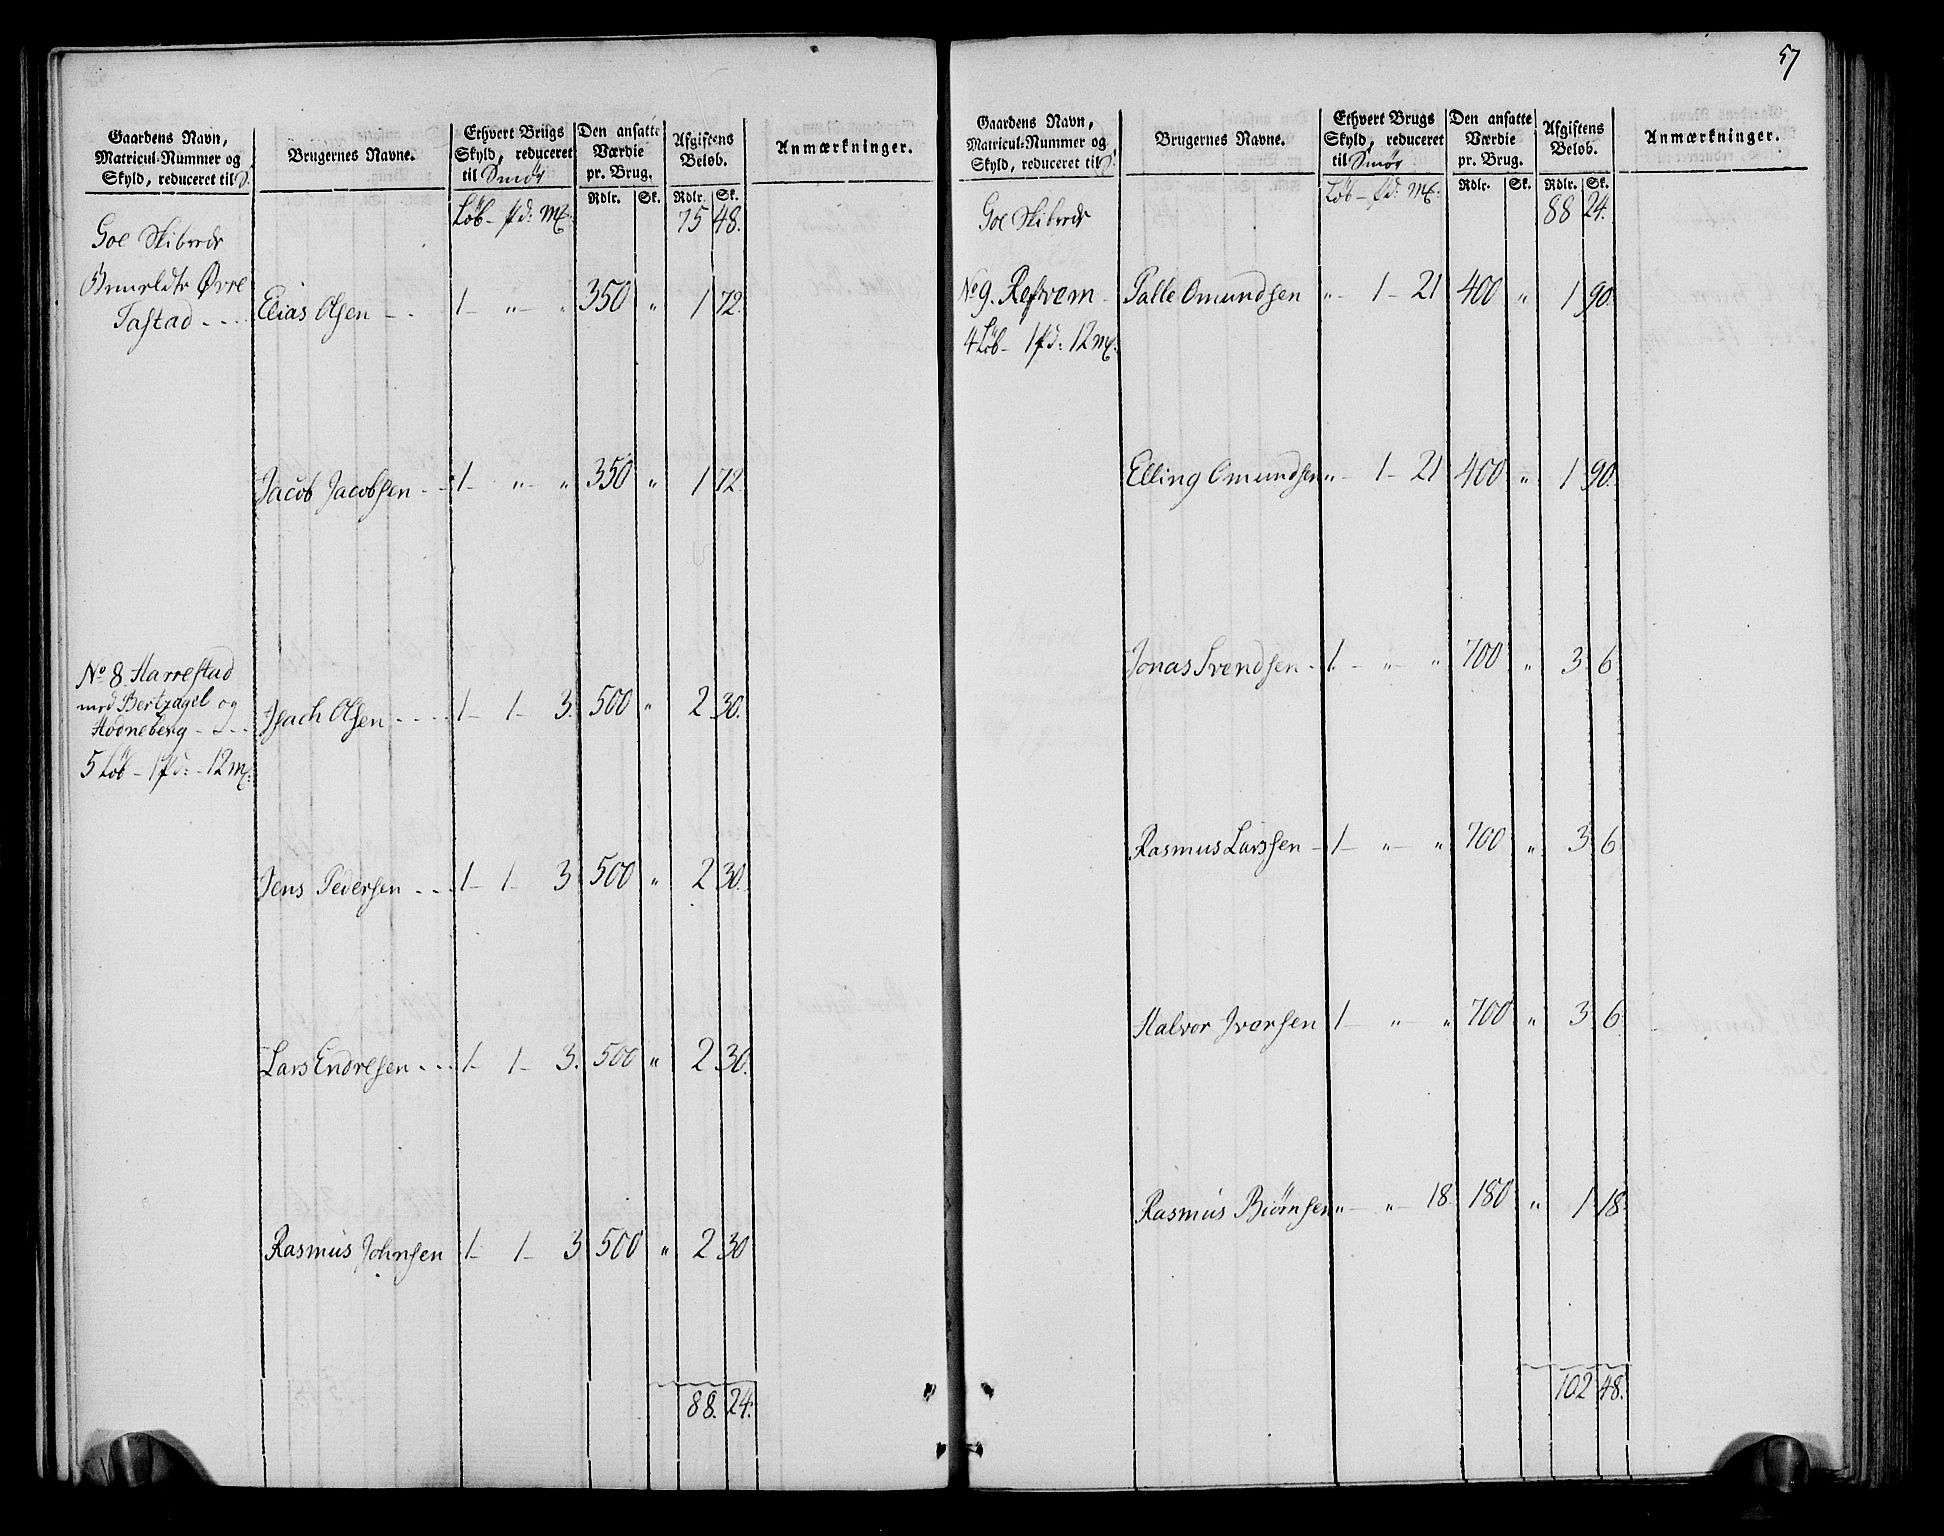 Gaardens Navn,
Matricul-Nummer og
Skyld, reduceret til S.
Brugernes Navne.
Ethvert Brugs
Skyld, reduceret
til Smör
Den ansatte
Værdie
pr. Brug.
Afgiftens
Beløb.
Anmærkninger.
Rdlr. Sk. Rdlr. Sk.
Löb - pd: mk: 75 48.
Goe Skibrede
Øvre
Tastad - - . Elias Olsen - . 1 - „ - „ 350 „ 1 72.
Jacob Jacobsen - - 1 - „ - „ 350 „ 1 72.
No 8. Harrestad
med Bertzagel og
Hodneberg - - - Isach Olsen - - - - 1 - 1 - 3. 500 „ 2 30.
5 Löb - 1 pd: - 12 mk:
Jens Pedersen - - - 1 - 1 - 3 500 „ 2 30.
Lars Endresen - - - 1 - 1 - 3. 500 „ 2 30.
Rasmus Johnsen 1 - 1 - 3 500 „ 2 30
88. 24.
57
Gaardens Navn,
Matricul-Nummer og
Skyld, reduceret til S.
Brugernes Navne.
Ethvert Brugs
Skyld, reduceret
til Smör
Den ansatte
Værdie
pr. Brug.
Afgiftens
Beløb.
Anmærkninger.
Rdlr. Sk. Rdlr. Sk.
Löb - pd: mk: 88 24.
Goe Skibrede
No 9. Refvem - Palle Omundsen „ - 1 - 21 400 „ 1 90.
4 Löb - 1 pd: 12 mk:
Elling Omundsen „ - 1 - 21 400 „ 1 90.
Jonas Svendsen - 1. - „ - „ 700 „ 3 6
Rasmus Larssen - 1 - „ - „ 700 „ 3 6
Halvor Ivarsen 1 - „ - „ 700 „ 3 6
Rasmus Biörnsen „ - „ - 18. 180 „ 1 18.
102 48.